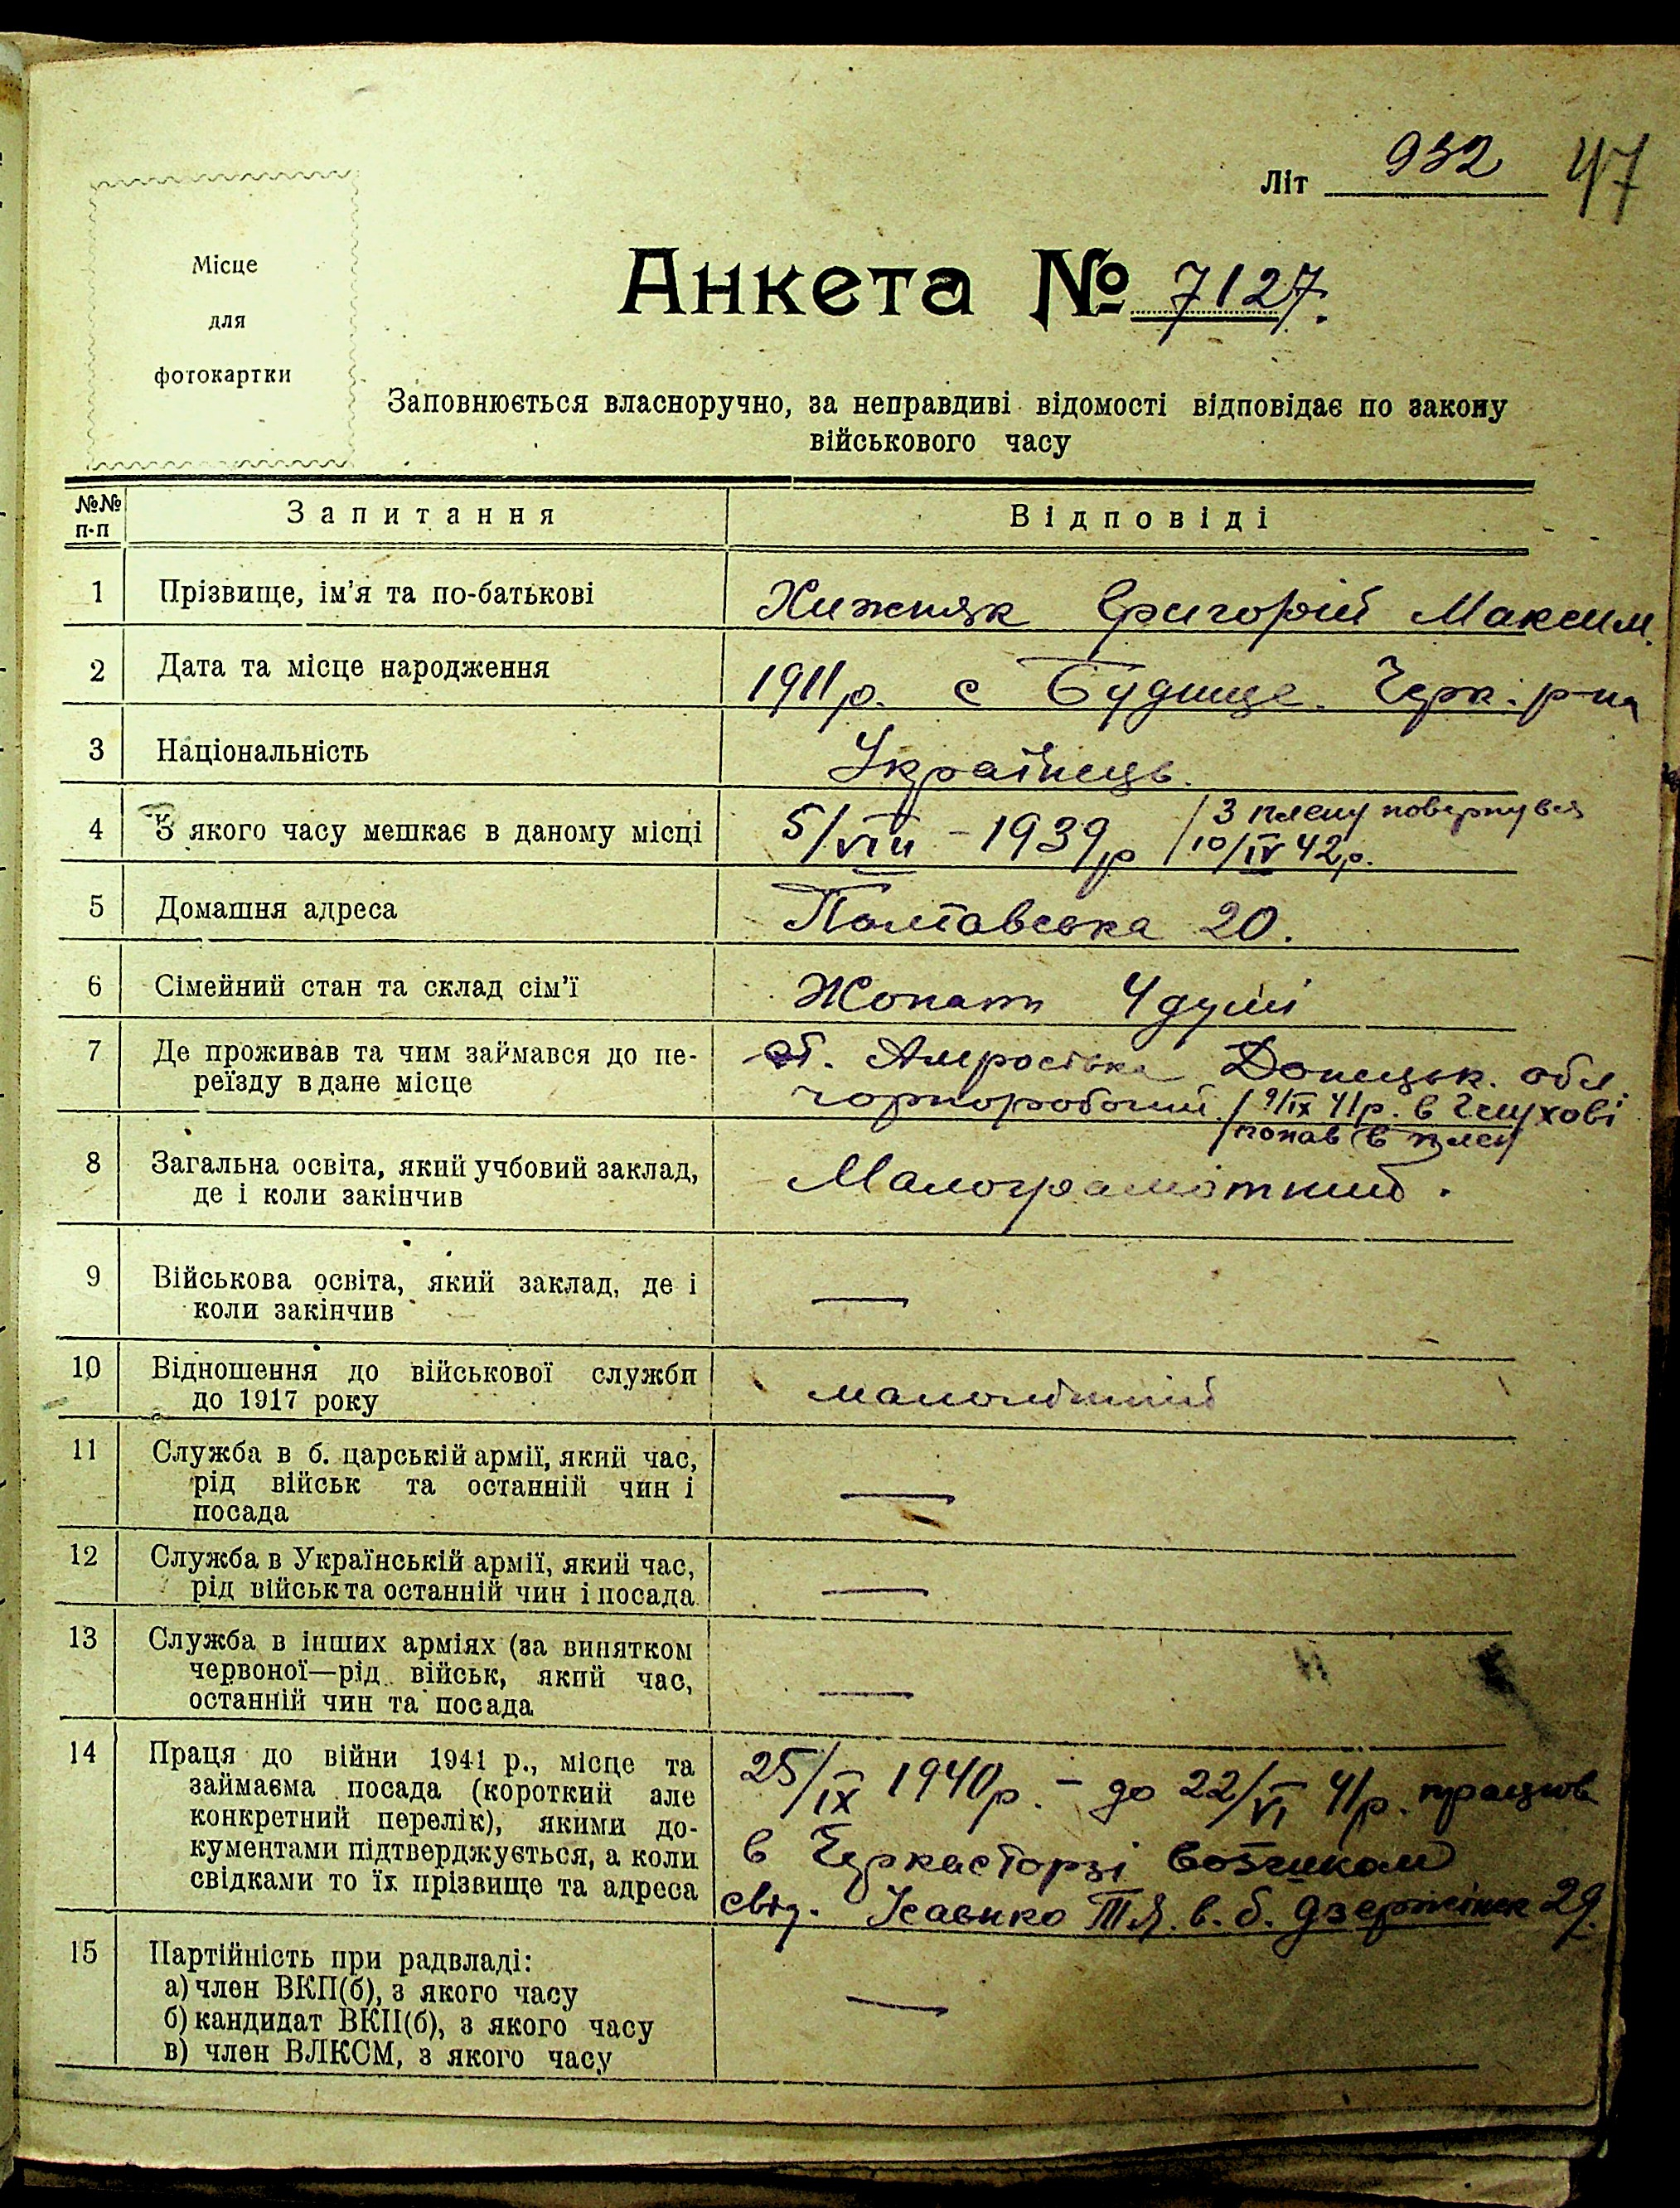 Літ 932 47
Місце
для
фотокартки
Анкета № 7127.
Заповнюється власноручно, за неправдиві відомості відповідає по закону
військового часу
№№
п-п
Запитання
Відповіді
1 Прізвище, ім'я та по-батькові
Хижняк Григорій Максим.
2 Дата та місце народження
1911 р. с Будище. Черк. р-на
3 Національність
Українець.
4 З якого часу мешкає в даному місці
5/VIII - 1939 р / З плену повернувся
10/IV 42 р.
5 Домашня адреса
Полтавська 20.
6 Сімейний стан та склад сім'ї
Жонат 4 душі
7 Де проживав та чим займався до пе-
реїзду в дане місце
ст. Амросівка Донецьк. обл.
чорноробочий / 9/IX 41 р. в Глухові
попав в плен
8 Загальна освіта, який учбовий заклад,
де і коли закінчив
Малограмотний.
9 Військова освіта, який заклад, де і
коли закінчив
—
10 Відношення до військової служби
до 1917 року
малолітній
11 Служба в б. царській армії, який час,
рід військ та останній чин і
посада
—
12 Служба в Українській армії, який час,
рід військ та останній чин і посада
—
13 Служба в інших арміях (за винятком
червоної—рід військ, який час,
останній чин та посада
—
14 Праця до війни 1941 р., місце та
займаєма посада (короткий але
конкретний перелік), якими до-
кументами підтверджується, а коли
свідками то їх прізвище та адреса
25/IX 1940 р. - до 22/VI 41 р. працюв
в Черкасторзі возчиком
свід. Ісаенко Т.Я. в. б. Дзержинск 29.
15 Партійність при радвладі:
а) член ВКП(б), з якого часу
б) кандидат ВКП(б), з якого часу
в) член ВЛКСМ, з якого часу
—